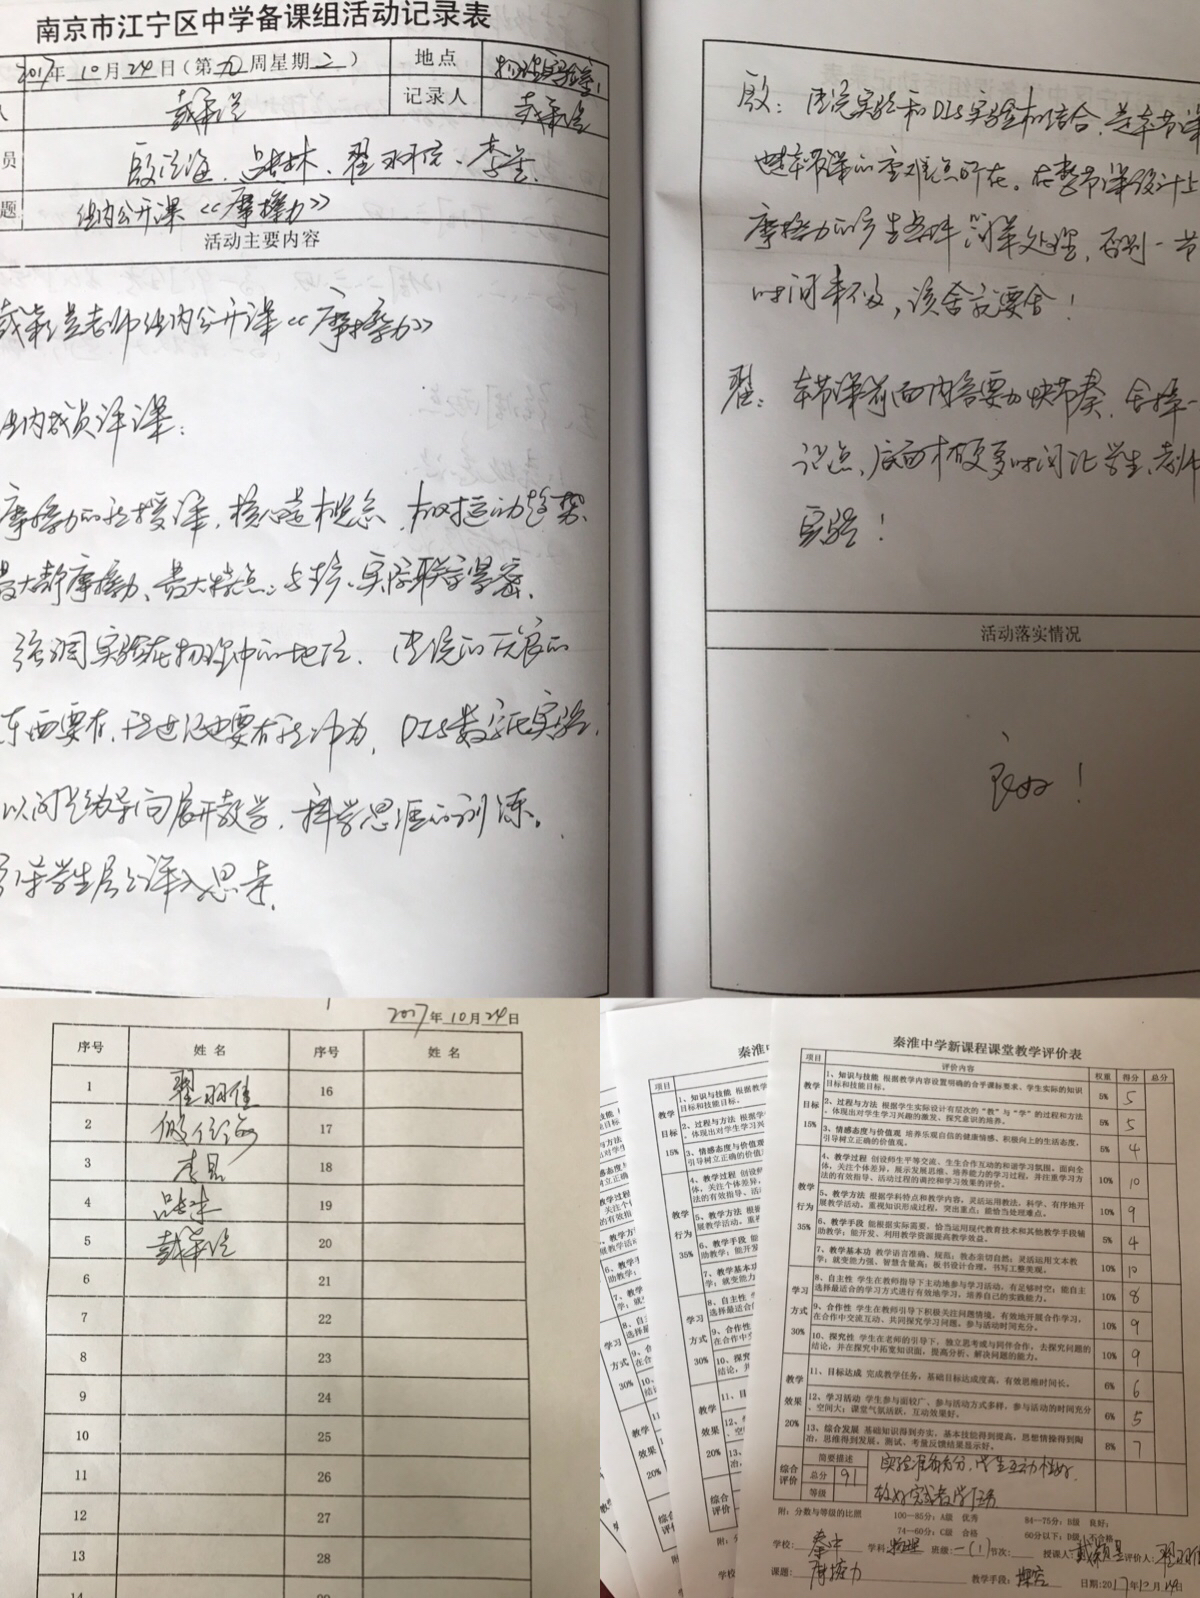 南京市江宁区中学备课组活动记录表
2017年 10月24日(第九周星期二)
地点
物理实验室1
人
记录人
员
题
组内公开课《摩擦力》
活动主要内容
老师组内公开课《摩擦力》
组内成员评课:
摩擦力的新授课,核心是概念,相对运动趋势、
最大静摩擦力、最大特点:与生活实际联系紧密。
强调实验在物理中的地位,传统的优良的
东西要有,新世纪也要有新作为,DIS数字化实验。
以问题为导向展开教学,科学思维的训练。
引导学生层层深入思考。
殷:传统实验和DIS实验相结合,是本节课
也是本节课的重难点所在。在整节课设计上
摩擦力的产生条件简单处理,否则一节
时间来不及,该舍就要舍!
翟:本节课前面内容要加快节奏,舍掉一
识点,后面才有更多时间让学生、老师
实验!
活动落实情况
良好!
2017年10月24日
序号 姓名 序号 姓名
1 16
2 17
3 18
4 19
5 20
6 21
7 22
8 23
9 24
10 25
11 26
12 27
13 28
秦淮中学新课程课堂教学评价表
项目 评价内容 权重 得分 总分
教学目标 15%
1、知识与技能 根据教学内容设置明确的合乎课标要求、学生实际的知识目标和技能目标。 5% 5
2、过程与方法 根据学生实际设计有层次的“教”与“学”的过程和方法,体现出对学生学习兴趣的激发、探究意识的培养。 5% 5
3、情感态度与价值观 培养乐观自信的健康情感、积极向上的生活态度,引导树立正确的价值观。 5% 4
教学行为 35%
4、教学过程 创设师生平等交流、生生合作互动的和谐学习氛围。面向全体,关注个体差异,展示发展思维、培养能力的学习过程,并注重学习方法的有效指导、活动过程的调控和学习效果的评价。 10% 10
5、教学方法 根据学科特点和教学内容,灵活运用教法,科学、有序地开展教学活动。重视知识形成过程,突出重点;能恰当处理难点。 10% 9
6、教学手段 能根据实际需要,恰当运用现代教育技术和其他教学手段辅助教学;能开发、利用教学资源提高教学效益。 5% 4
7、教学基本功 教学语言准确、规范;教态亲切自然;灵活运用文本教学;就变能力强、智慧含量高;板书设计合理,书写工整美观。 10% 10
学习方式 30%
8、自主性 学生在教师指导下主动地参与学习活动,有足够时空;能自主选择最适合的学习方式进行有效地学习,培养自己的实践能力。 10% 8
9、合作性 学生在教师引导下积极关注问题情境,有效地开展合作学习,在合作中交流互动、共同探究学习问题,参与活动时间充分。 10% 9
10、探究性 学生在老师的引导下,独立思考或与同伴合作,去探究问题的结论,并在探究中拓宽知识面,提高分析、解决问题的能力。 10% 9
教学效果 20%
11、目标达成 完成教学任务,基础目标达成度高,有效思维时间长。 6% 6
12、学习活动 学生参与面较广、参与活动方式多样,参与活动的时间充分、空间大;课堂气氛活跃,互动效果好。 6% 5
13、综合发展 基础知识得到夯实,基本技能得到提高,思想情操得到陶冶,思维得到发展。测试、考量反馈结果显示好。 8% 7
综合评价
简要描述
总分 91
等级
实验准备充分,学生互动性好,
较好完成教学任务
附:分数与等级的比照 100—85分:A级 优秀 84—75分:B级 良好;
74—60分:C级 合格 60分以下:D级 不合格
学校:秦中 学科:物理 班级:一(1) 节次: 授课人:戴颖昱 评价人:
课题:摩擦力 教学手段: 日期:2017年10月24日